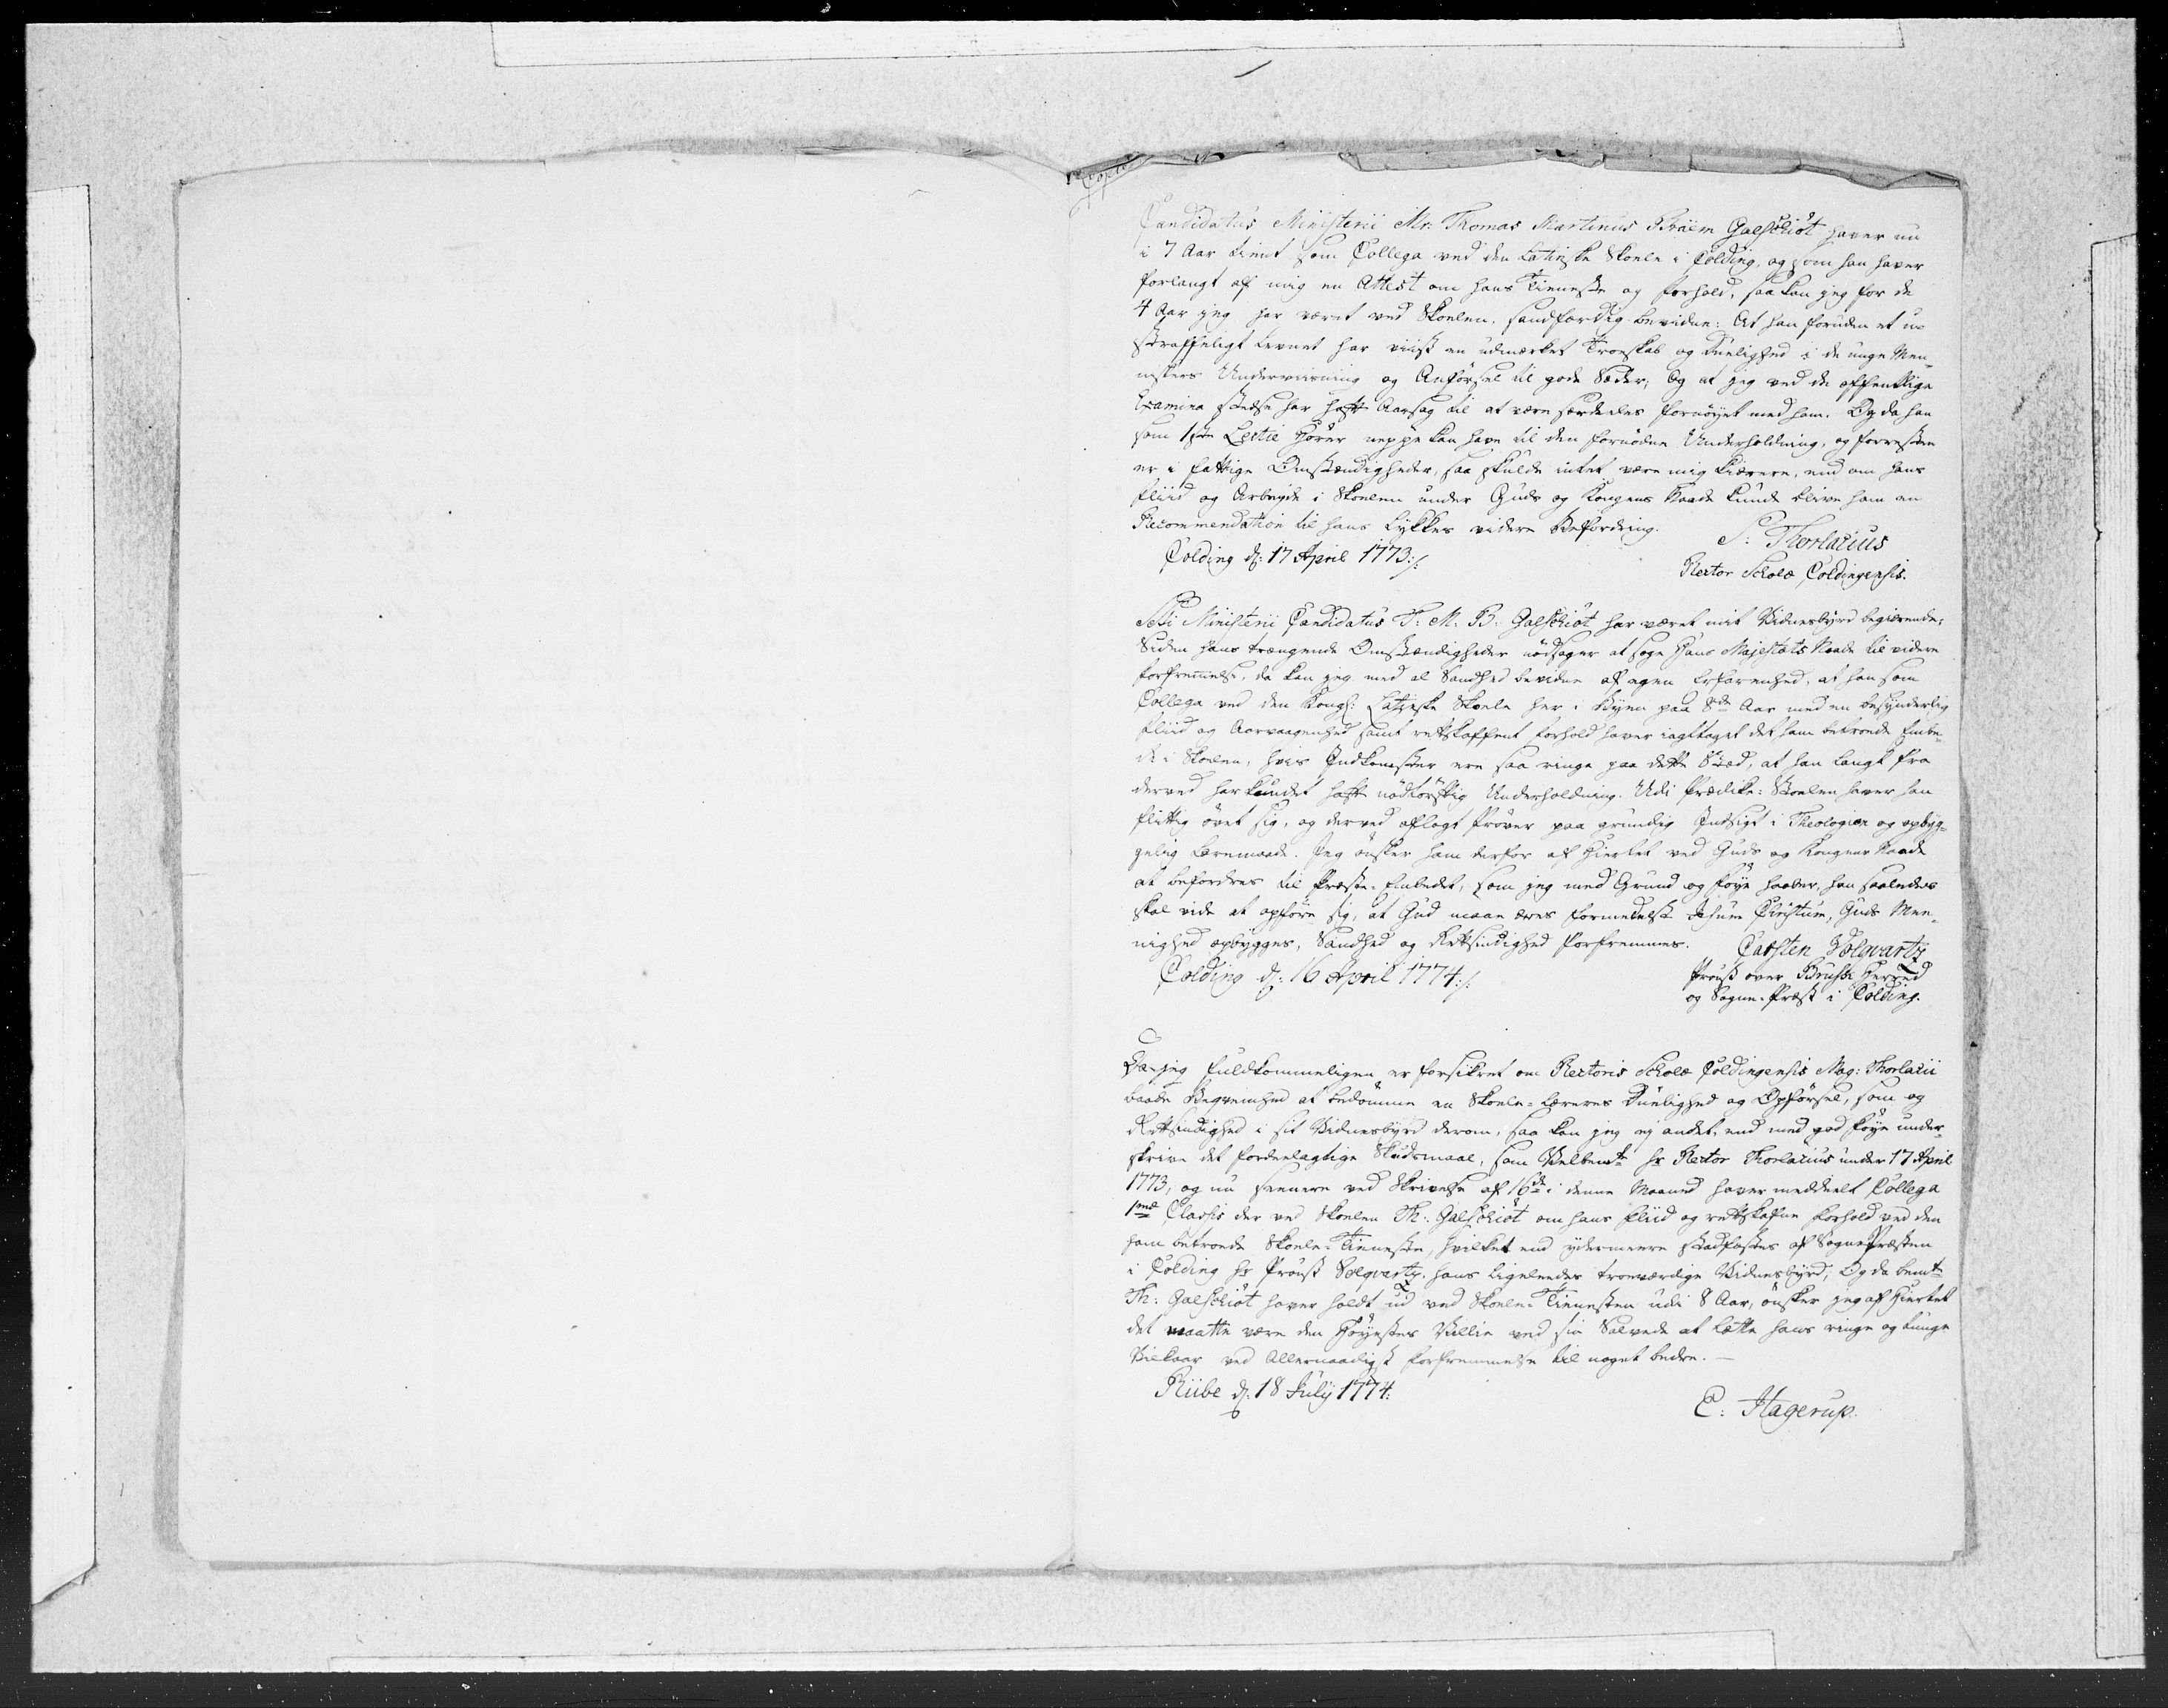 Copie
Candidatus Ministerii Mr: Thomas Martinus Braëm Galschiöt haver nu
i 7 Aar tient som Collega ved den Latinske Skoele i Colding, og som han haver
forlangt af mig en Attest om hans Tieneste og Forhold, saa kan jeg for de
4 Aar jeg har været ved Skoelen, sandfærdig bevidne: At han foruden et u-
straffeligt Levnet har viist en udmærket Troeskab og Duelighed i de unge Men-
neskers Underviisning og Anførsel til gode Sæder; Og at jeg ved de offentlige
Examina stedse har haft Aarsag til at være særdeeles fornöyet med ham. Og da han
som 1ste Lectie Hörer neppe kan have til den fornödne Underholdning, og forresten
er i fattige Omstændigheder, saa skulde intet være mig kiærere, end om hans
Fliid og Arbeyde i Skoelen under Guds og Kongens Naade kunde blive ham en
Recommendation til hans Lykkes videre Befordring.
S: Thorlacius
Colding d: 17 April 1773:/:
Rector Scholæ Coldingensis.
Ministerii Candidatus T: M: B: Galschiöt har været mit Vidnesbyrd begiærende;
Siden hans trængende Omstændigheder nödsager at söge Hans Majestæts Naade til videre
Forfremmelse, da kan jeg med al Sandhed bevidne af egen Erfarenhed, at han som
Collega ved den Kongl: Latinske Skoele her i Byen paa 8de Aar med en besynderlig
Fliid og Aarvaagenhed samt retskaffent Forhold haver iagttaget det ham betroede Embe-
de i Skoelen, hvis Indkomster ere saa ringe paa dette Stæd, at han langt fra
derved har kundet haft nödtörftig Underholdning. Udi Prædike-Skoelen haver han
flittig övet sig, og derved aflagt Pröver paa grundig Indsigt i Theologien og opbyg-
gelig Læremaade. Jeg önsker ham derfor af Hiertet ved Guds og Kongens Naade
at befordres til Præste-Embedet, som jeg med Grund og Föye haaber, han saaledes
skal vide at opföre sig, at Gud maae æres formedelst Jesum Christum, Guds Mee-
nighed opbygges, Sandhed og Retsindighed forfremmes.
Carsten Volqvartz
Colding d: 16 April 1774:/:
Provst over Brusk Herred
og Sogne-Præst i Colding.
Da jeg fuldkommeligen er forsikret om Rectoris Scholæ Coldingensis Mag: Thorlacii
baade Beqvemhed at bedömme en Skoele-Læreres Duelighed og Opførsel, som og
Retsindighed i sit Vidnesbyrd derom, saa kan jeg ej andet, end med god Föye under-
skrive det fordeelagtige Skudsmaal, som Velbemte Hr Rector Thorlacius under 17 April
1773, og nu senere ved Skrivelse af 16de i denne Maaned haver meddeelt Collega
1mæ Classis der ved Skoelen Th: Galschiöt om hans Fliid og retskafne Forhold ved den
ham betroede Skoele-Tieneste, hvilket end ydermeere stadfæstes af SognePræsten
i Colding Hr Provst Volqvartz hans ligeleedes troeværdige Vidnesbyrd; Og da bemte
Th: Galschiöt haver holdt ud ved Skoele-Tienesten udi 8 Aar, önsker jeg af Hiertet
det maatte være den Höyestes Villie ved sin Salvede at lætte hans ringe og tunge
Vilkaar ved Allernaadigst Forfremmelse til noget bedre.
Riibe d: 18 July 1774:
E: Hagerup.